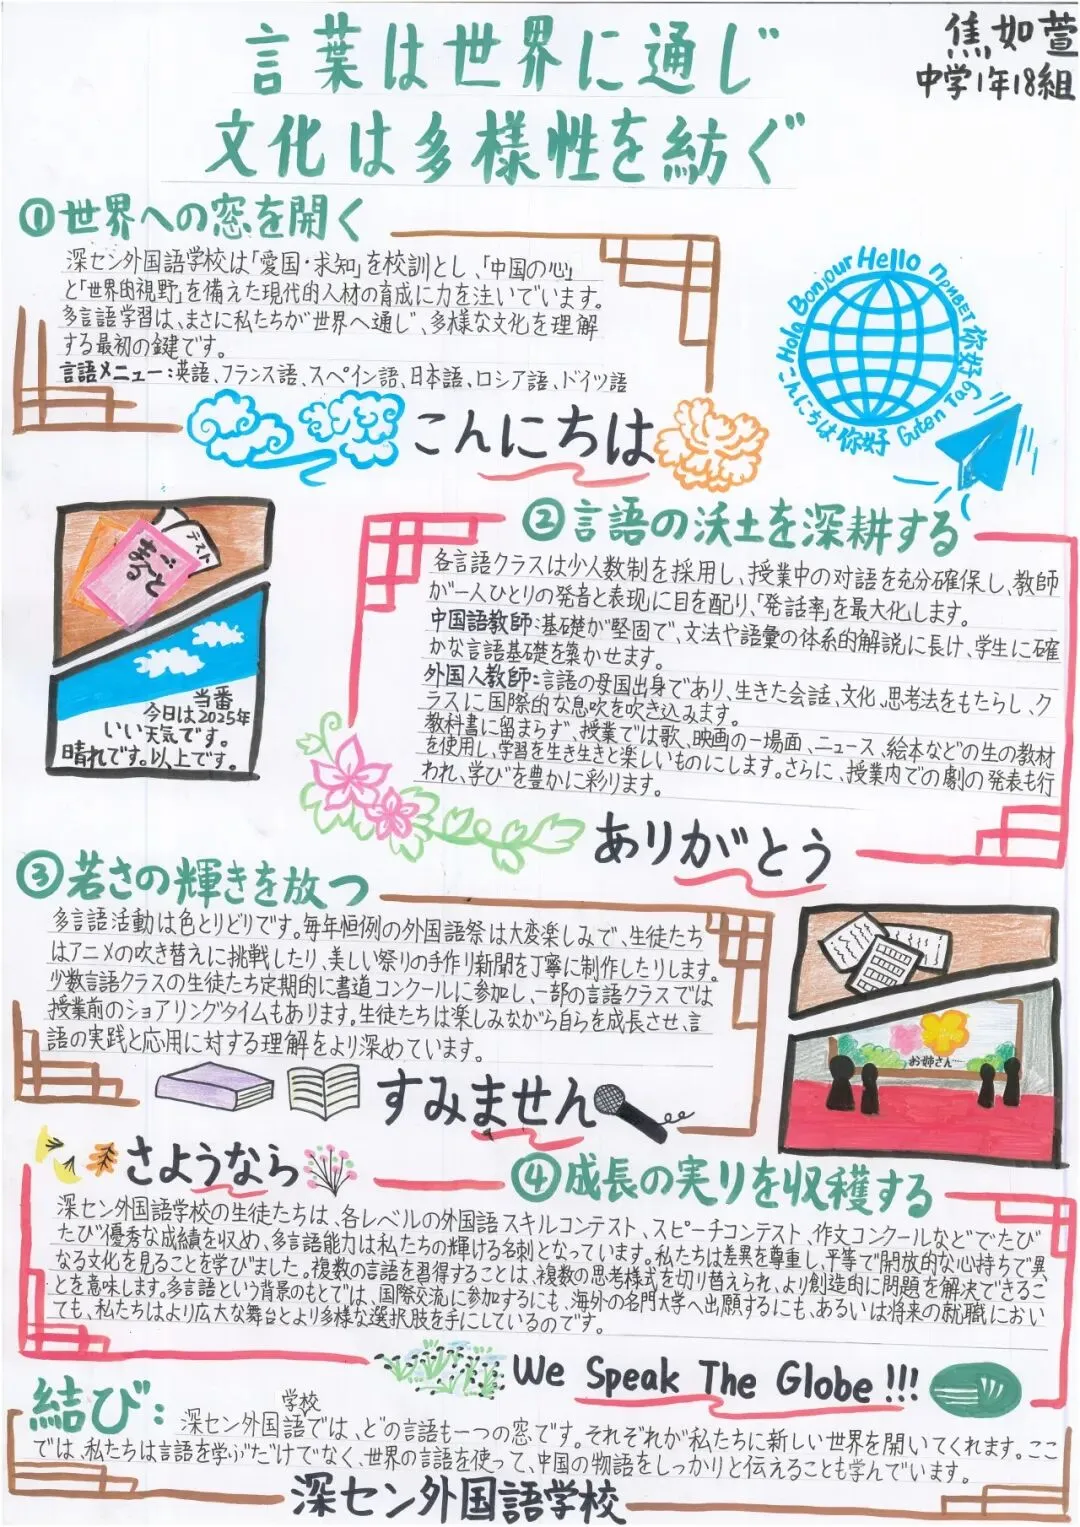 言葉は世界に通じ
文化は多様性を紡ぐ
焦如萱
中学1年18組
①世界への窓を開く
深セン外国語学校は「愛国・求知」を校訓とし、「中国の心」
と「世界的視野」を備えた現代的人材の育成に力を注いでいます。
多言語学習は、まさに私たちが世界へ通じ、多様な文化を理解
する最初の鍵です。
言語メニュー:英語、フランス語、スペイン語、日本語、ロシア語、ドイツ語
こんにちは Hola Bonjour Hello Привет 你好
你好 Guten Tag
こんにちは
テスト
まるごと
当番
今日は2025年
いい天気です。
晴れです。以上です。
②言語の沃土を深耕する
各言語クラスは少人数制を採用し、授業中の対語を充分確保し、教師
が一人ひとりの発音と表現に目を配り、「発話率」を最大化します。
中国語教師:基礎が堅固で、文法や語彙の体系的解説に長け、学生に確
かな言語基礎を築かせます。
外国人教師:言語の母国出身であり、生きた会話、文化、思考法をもたらし、ク
ラスに国際的な息吹を吹き込みます。
教科書に留まらず、授業では歌、映画の一場面、ニュース、絵本などの生の教材
を使用し、学習を生き生きと楽しいものにします。さらに、授業内での劇の発表も行
われ、学びを豊かに彩ります。
ありがとう
③若さの輝きを放つ
多言語活動は色とりどりです。毎年恒例の外国語祭は大変楽しみで、生徒たち
はアニメの吹き替えに挑戦したり、美しい祭りの手作り新聞を丁寧に制作したりします。
少数言語クラスの生徒たち定期的に書道コンクールに参加し、一部の言語クラスでは
授業前のショアリングタイムもあります。生徒たちは楽しみながら自らを成長させ、言
語の実践と応用に対する理解をより深めています。
すみません
お姉さん…
さようなら
④成長の実りを収穫する
深セン外国語学校の生徒たちは、各レベルの外国語スキルコンテスト、スピーチコンテスト、作文コンクールなどでたび
たび優秀な成績を収め、多言語能力は私たちの輝ける名刺となっています。私たちは差異を尊重し、平等で開放的な心持ちで異
なる文化を見ることを学びました。複数の言語を習得することは、複数の思考様式を切り替えられ、より創造的に問題を解決できるこ
とを意味します。多言語という背景のもとでは、国際交流に参加するにも、海外の名門大学へ出願するにも、あるいは将来の就職におい
ても、私たちはより広大な舞台とより多様な選択肢を手にしているのです。
We Speak The Globe!!!
結び:
学校
深セン外国語では、どの言語も一つの窓です。それぞれが私たちに新しい世界を開いてくれます。ここ
では、私たちは言語を学ぶだけでなく、世界の言語を使って、中国の物語をしっかりと伝えることも学んでいます。
深セン外国語学校